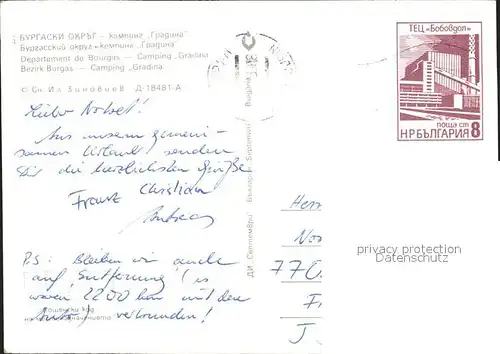 БУРГАСКИ ОКРЪГ — къмпинг „Градина"
Бургасский округ — кемпинг „Градина"
Département de Bourgas — Camping „Gradina
Bezirk Burgas — Camping „Gradina
© Сн. Ил. Зиновиев Д-18481-А
ТЕЦ „Бобовдол"
ПОЩА СТ
НР БЪЛГАРИЯ 8
Lieber Norbert!
Aus unserem gemein-
samen Urlaub senden
Dir die herzlichsten Grüße
Franz Christian
Andreas
P.S.: Bleiben wir auch
auf „Entfernung" (es
waren 2200 km mit dem
Auto) verbunden!
ДИ „Септември"
Her
No
770
F
J
privacy protection
Datenschutz